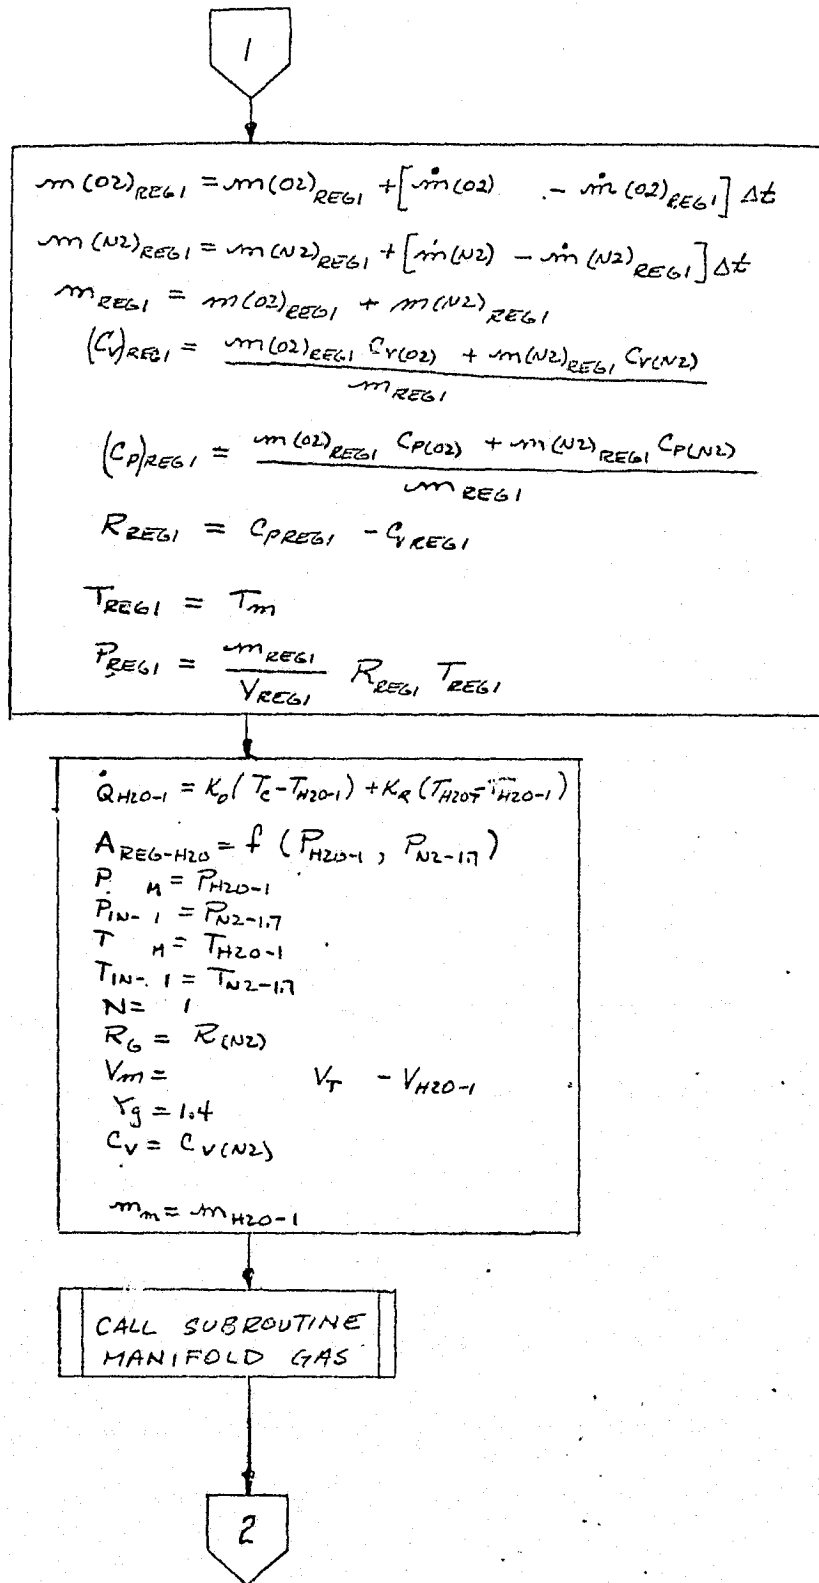 1
m(O2)REG1 = m(O2)REG1 + [ṁ(O2) - ṁ(O2)REG1] Δt
m(N2)REG1 = m(N2)REG1 + [ṁ(N2) - ṁ(N2)REG1] Δt
mREG1 = m(O2)REG1 + m(N2)REG1
(Cv)REG1 = m(O2)REG1 Cv(O2) + m(N2)REG1 Cv(N2)
mREG1
(Cp)REG1 = m(O2)REG1 Cp(O2) + m(N2)REG1 Cp(N2)
mREG1
RREG1 = CpREG1 - CvREG1
TREG1 = Tm
PREG1 = mREG1 RREG1 TREG1
VREG1
Q̇H2O-1 = Ko(Tc-TH2O-1) + KR(TH2OT-TH2O-1)
AREG-H2O = f (PH2O-1, PN2-1.7)
P M = PH2O-1
PIN-1 = PN2-1.7
T M = TH2O-1
TIN-1 = TN2-1.7
N = 1
RG = R(N2)
Vm = VT - VH2O-1
γg = 1.4
Cv = Cv(N2)
mm = mH2O-1
CALL SUBROUTINE
MANIFOLD GAS
2